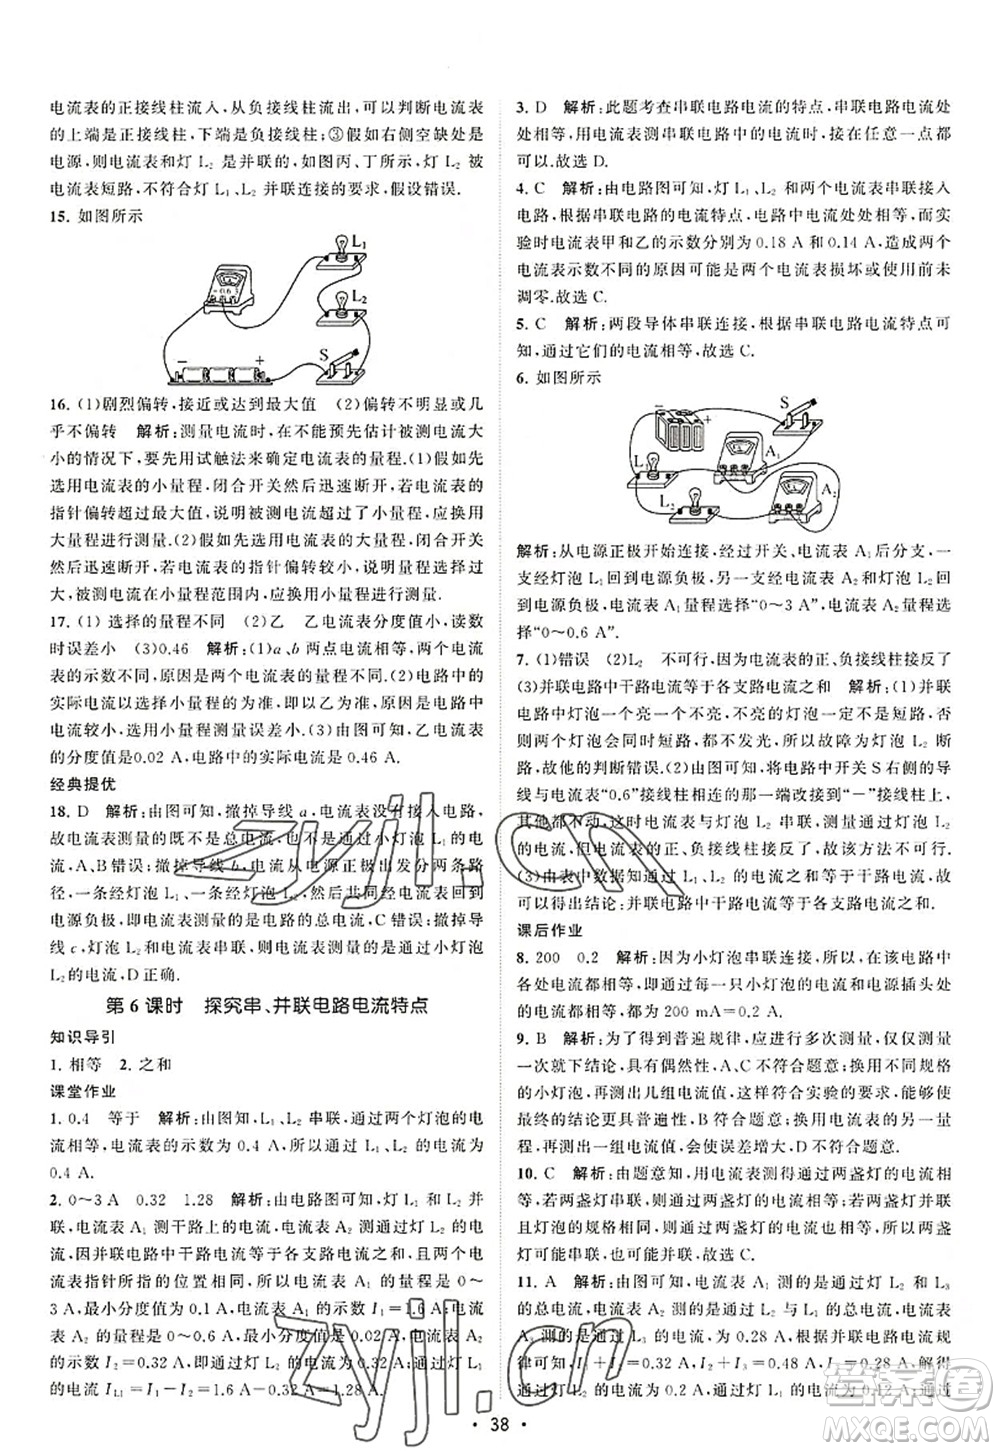 电流表的正接线柱流入,从负接线柱流出,可以判断电流表
的上端是正接线柱,下端是负接线柱;③假如右侧空缺处是
电源,则电流表和灯 L₂ 是并联的,如图丙、丁所示,灯 L₂ 被
电流表短路,不符合灯 L₁、L₂ 并联连接的要求,假设错误.
15. 如图所示
L₁
L₂
S
16. (1)剧烈偏转,接近或达到最大值 (2)偏转不明显或几
乎不偏转 解析:测量电流时,在不能预先估计被测电流
大小的情况下,要先用试触法来确定电流表的量程.(1)假如
先选用电流表的小量程,闭合开关然后迅速断开,电流表的
指针偏转超过最大值,说明被测电流超过了小量程,应换用
大量程进行测量.(2)假如先选用大量程,闭合开关然后迅速
断开,若电流表的指针偏转非常小,没有超过小量程的最大
值,被测电流在小量程范围内,应换用小量程测量.
17. (1) 选择的量程不同 (2) 乙 乙电流表分度值小,读数
时误差小 (3)0.46 解析:(1)a、b 两点电流相等,两电流
表偏转角度不同,原因是两个电流表量程不同.(2)电路中的
实际电流大小以量程小的为准,即以乙为准,原因是量程小
的电流表测量误差小.(3)由图可知,乙电流表
的分度值是 0.02 A,电路中的实际电流为 0.46 A.
经典提优
18. D 解析:由图可知,撤掉导线 a,电流表没有接入电路,
故电流表测量的既不是总电流,也不是通过小灯泡的电
流,A、B 错误;撤掉导线 b,电流从电源正极出发分两条路
径,一条经灯泡 L₁、一条经灯泡 L₂,然后共同经电流表回到
电源负极,故电流表测量的是电路的总电流,C 错误;撤掉导
线 c,灯泡 L₂ 与电流表串联,则电流表测量的是通过小灯泡
L₂ 的电流,D 正确.
第 6 课时 探究串、并联电路电流特点
知识导引
1. 相等 2. 之和
课堂作业
1. 0.4 等于 解析:由图知,L₁、L₂ 串联,通过两个灯泡的电
流相等,电流表的示数为 0.4 A,所以通过 L₂ 的电流为
0.4 A.
2. 0～3 A 0.32 1.28 解析:由电路图可知,灯 L₁、L₂ 并
联,电流表 A₁ 测干路上的电流,电流表 A₂ 测通过灯 L₂ 的
电流,因为并联电路中干路电流等于各支路电流之和,两个
电流表指针位置相同,所以电流表 A₁ 的量程是 0～
3 A,分度值为 0.1 A,电流表 A₁ 的示数 I₁＝1.6 A,电流表
A₂ 的量程为 0～0.6 A,最小分度值是 0.02 A,电流表 A₂
的示数 I₂＝0.32 A,即通过灯 L₂ 的电流为 0.32 A,通过灯
L₁ 的电流 I_L1＝I₁－I₂＝1.6 A－0.32 A＝1.28 A.
3. D 解析:此题考查串联电路电流的特点,串联电路电流处
处相等,用电流表测串联电路中的电流时,接在任意一点都
可以.故选 D.
4. C 解析:由电路图可知,两灯与两个电流表串联接入
电路,根据串联电路的电流特点,电路中电流处处相等,而实
验时电流表甲和乙的示数分别为 0.18 A 和 0.14 A,造成两个
电流表示数不同的原因可能是两个电流表损坏或使用前未
调零.故选 C.
5. C 解析:两段导体串联连接,根据串联电路电流特点可
知,通过它们的电流相等,故选 C.
6. 如图所示
S
L₁
A₁
L₂
A₂
解析:从电源正极开始连接,过开关、电流表 A₁ 后分支,一
支经灯泡 L₁ 回到电源负极,另一支经电流表 A₂ 和灯泡 L₂
回到电源负极.电流表 A₁ 量程选择“0～3 A”,A₂ 量程选
择“0～0.6 A”.
7. (1)错误 (2)L₂ 不可行,因为电流表的正、负接线柱接反了
(3)并联电路中干路电流等于各支路电流之和 解析:(1)并联
电路中灯泡一个亮一个不亮,不亮的灯泡一定不是短路,否
则两个灯泡会同时短路,都不发光,所以应该是灯泡 L₁ 断
路,故他的判断错误.(2)乙图中,将电路中开关 S 右侧的导
线与电流表“0.6”接线柱相连的那一端改接到“－”接线柱上,
其他都不动,此时电流表与灯泡 L₂ 串联,测量通过灯泡 L₂ 的
电流,但电流表的正、负接线柱接反了,故该方法不可行.
(3)由表中数据知通过 L₁、L₂ 的电流之和等于总电流,由此可
得出结论:并联电路中干路电流等于各支路电流之和.
课后作业
8. 200 0.2 解析:因为小灯泡串联连接,所以在该电路中
电流处处相等,即通过每只小灯泡的电流和电源插头处的
电流均为 200 mA＝0.2 A.
9. B 解析:为了得到普遍规律,应进行多次测量,仅仅测量
一次就下结论,具有偶然性,A、C 不符合题意;换用不同规格
的小灯泡,再测出几组电流值,这样获得的结论很多,能够使
最终的结论更具有普遍性,B 符合题意;换用电流表的另一量程,
再测出一组电流值,会使误差增大,D 不符合题意.
10. C 解析:由题意知,用电流表测得通过两盏灯的电流相
等,若两盏灯串联,则规格可能相同,也可能不相同;若并联
且灯泡的规格相同,则通过两盏灯的电流也相等,所以两盏
灯可能串联,也可能并联,故选 C.
11. A 解析:由图可知,电流表 A₁ 测的是通过灯 L₂ 和 L₃
的总电流,电流表 A₂ 测的是通过 L₁、L₂ 与 L₃ 的总电流,电流表
A₃ 测的是通过 L₃ 的电流,为 0.28 A.根据并联电路电流规
律可知 I₁＋I₂＋I₃＝0.48 A,I₂＋I₃＝0.36 A,解得
通过灯泡 L₁ 的电流为 0.12 A;通过
38